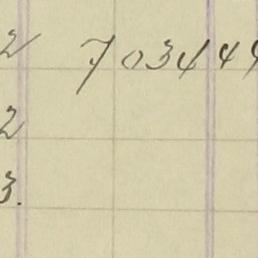 2 703449
2
3.